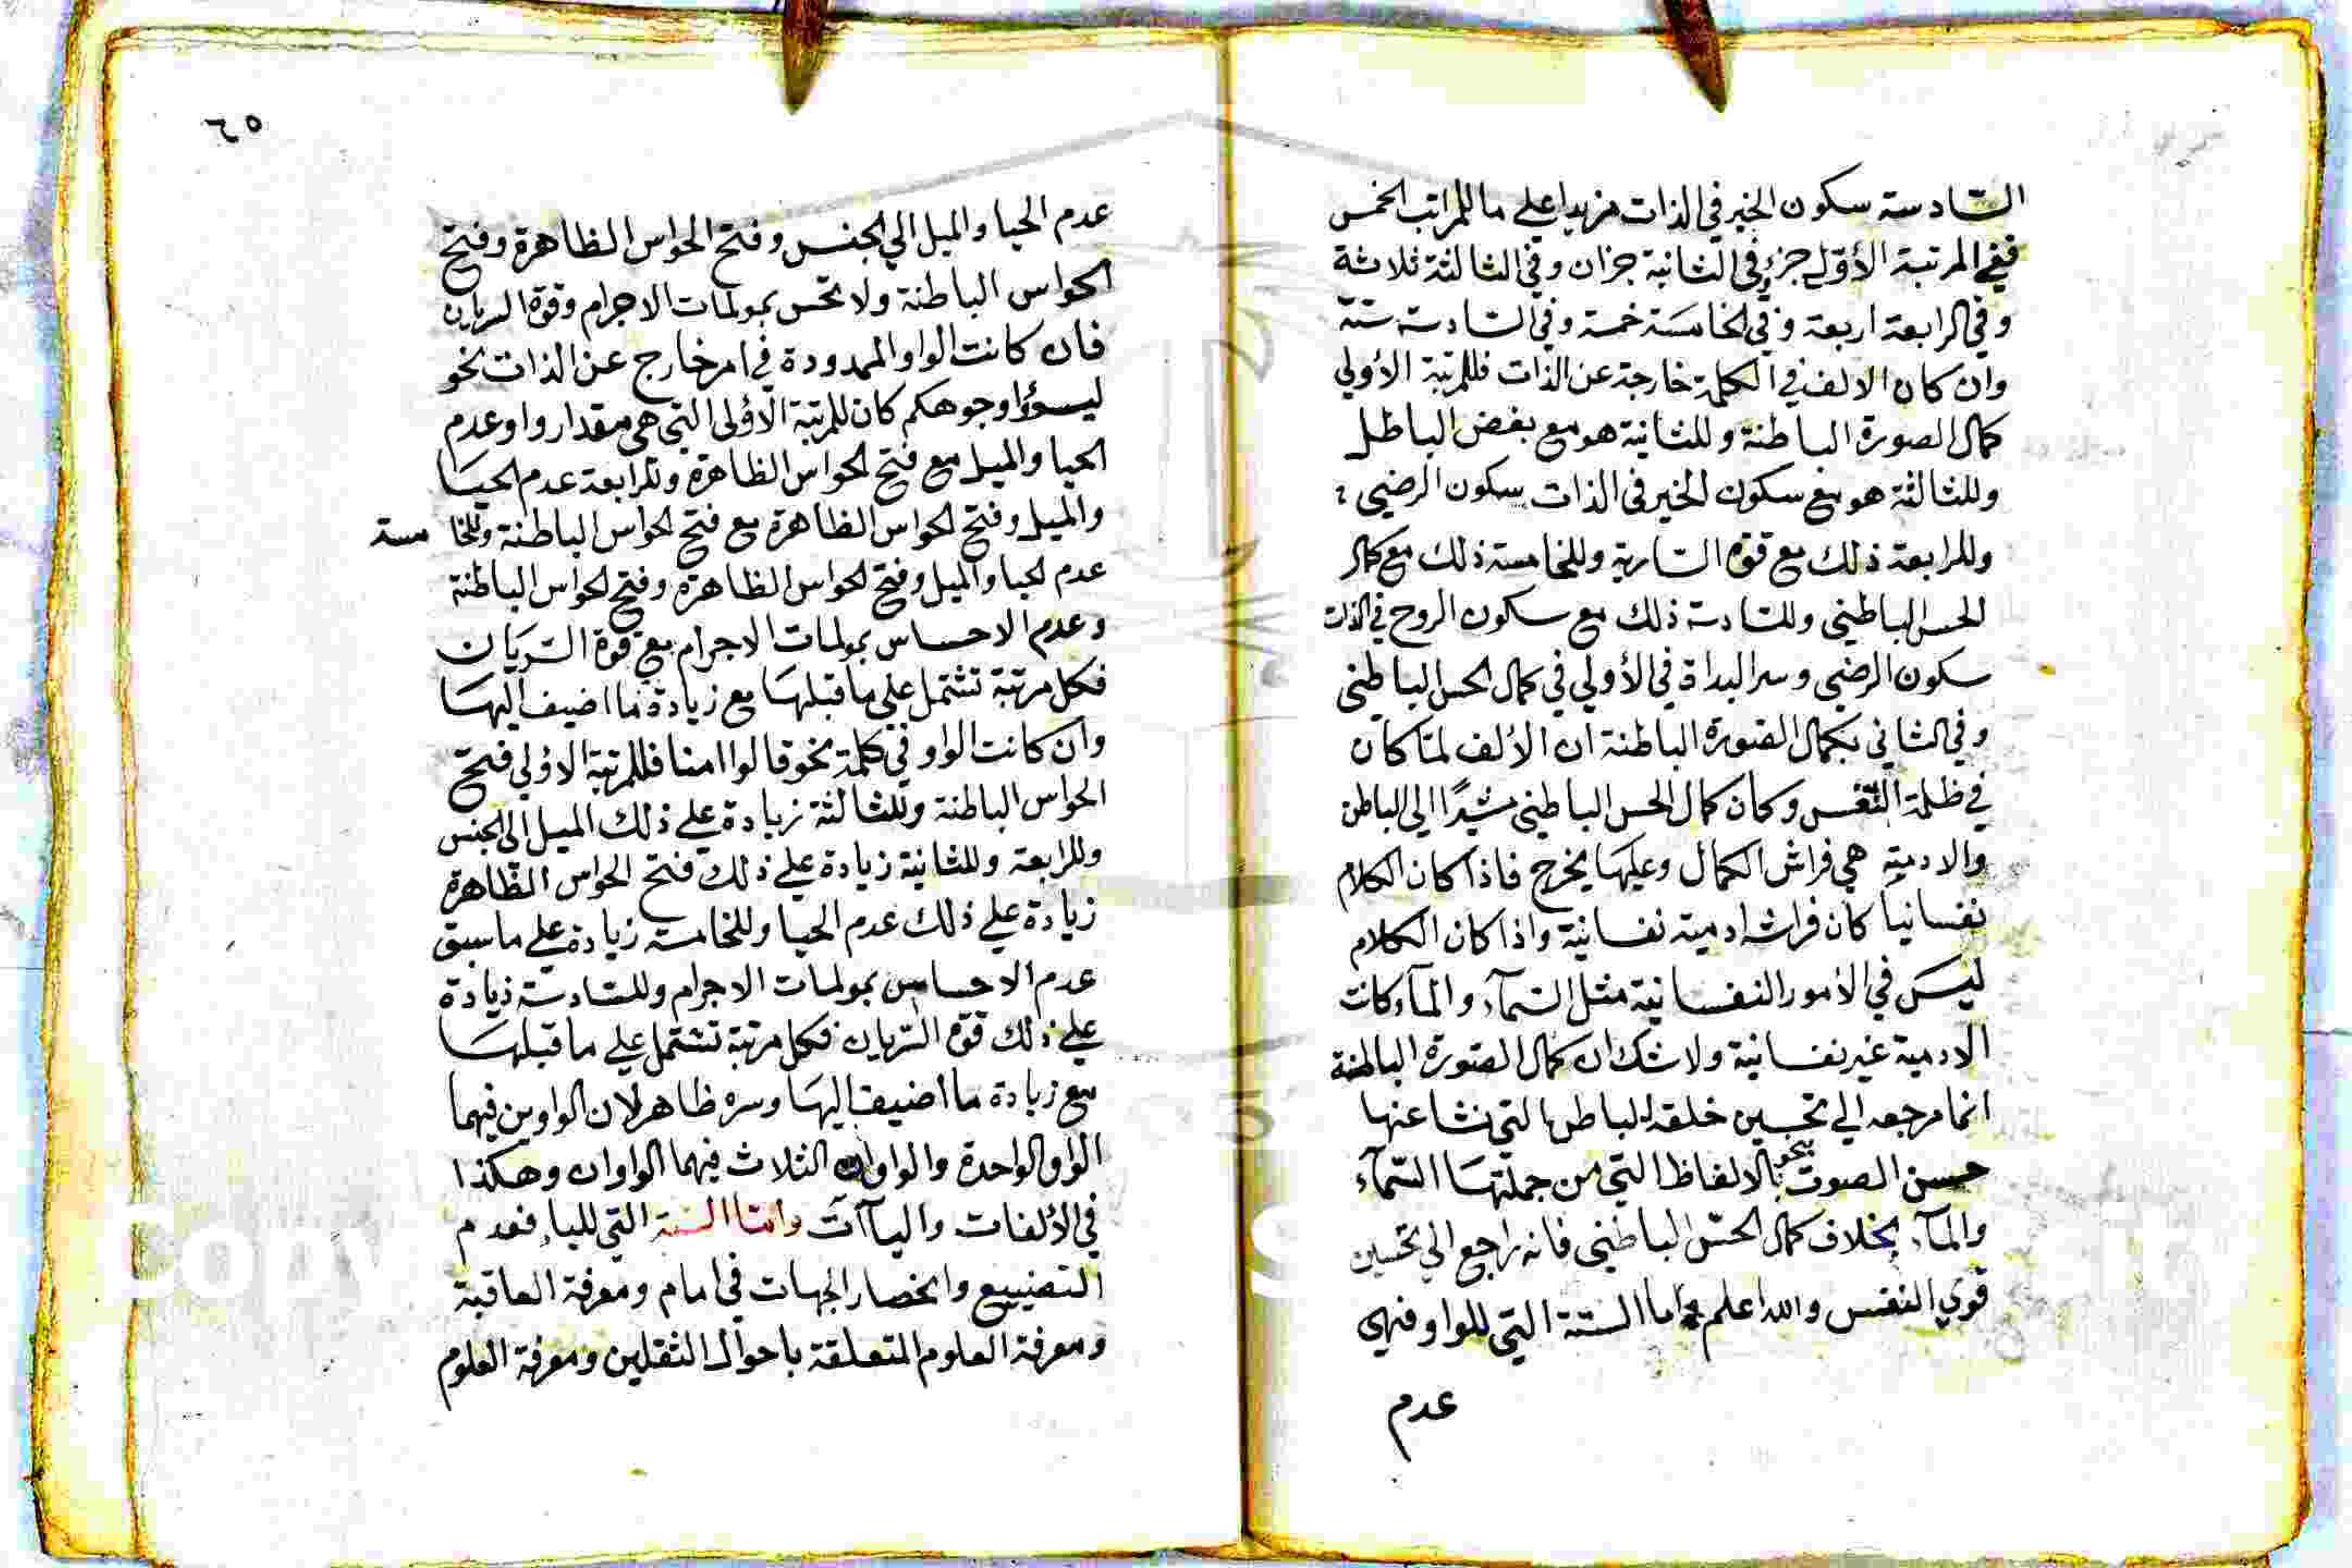 السادسة سكون الخير في الذات مزيدا علي ما للمراتب الخمس
ففي المرتبة الأولي جزء في الثانية جزان وفي الثالثة ثلاثة
وفي الرابعة اربعة وفي الخامسة خمسة وفي السادسة ستة
وان كان الالف في الكلمة خارجة عن الذات فللمرتبة الأولي
كمال الصورة الباطنة وللثانية هو مع بغض الباطل
وللثالثة هو مع سكون الخير في الذات سكون الرضي
وللرابعة ذلك مع قوة السارية وللخامسة ذلك مع كمال
الحس الباطيني وللسادسة ذلك مع سكون الروح في الذات
سكون الرضي وسر البداة في الأولي في كمال الحس الباطني
وفي الثاني بكمال الصورة الباطنة ان الألف لما كان
في ظلمة النفس وكان كمال الحس الباطيني مشيرًا الي الباطن
والادمية هي فراش الكمال وعليها يخرج فاذا كان الكلام
نفسانيا كان فراشه ادمية نفسانية واذا كان الكلام
ليس في الأمور النفسانية مثل السمآء والمآء كانت
الادمية غير نفسانية ولا شك ان كمال الصورة الباطنة
انما مرجعه الي تحسين خلقة الباطن التي نشا عنها
حسن الصوت بنحو الالفاظ التي من جملتها السمآء
والمآء بخلاف كمال الحس الباطيني فانه راجع الي تحسين
قوي النفس والله اعلم اما الستة التي للواو فهي
عدم
٦٥
عدم الحيا والميل الي الجنس وفتح الحواس الظاهرة وفتح
الحواس الباطنة ولا تحس بمولمات الاجرام وقوة السريان
فان كانت الواو الممدودة في امر خارج عن الذات نحو
ليسؤا وجوهكم كان للمرتبة الأولى التي هي مقدار واو عدم
الحيا والميل مع فتح الحواس الظاهرة وللرابعة عدم الحيا
والميل وفتح الحواس الظاهرة مع فتح الحواس الباطنة وللخامسة
عدم الحيا والميل وفتح الحواس الظاهرة وفتح الحواس الباطنة
وعدم الاحساس بمولمات الاجرام مع قوة السريان
فكل مرتبة تشتمل علي ما قبلها مع زيادة ما اضيف اليها
وان كانت الواو في كلمة نحو قالوا امنا فللمرتبة الاولي فتح
الحواس الباطنة وللثالثة زيادة علي ذلك الميل الي الجنس
وللرابعة وللثانية زيادة علي ذلك فتح الحواس الظاهرة
زيادة علي ذلك عدم الحيا وللخامسة زيادة علي ما سبق
عدم الاحساس بمولمات الاجرام وللسادسة زيادة
علي ذلك قوة السريان فكل مرتبة تشتمل علي ما قبلها
مع زيادة ما اضيف اليها وسره ظاهر لان الواوين فيهما
الواو الواحدة والواوات الثلاث فيهما الواوان وهكذا
في الألفات والياآت وامنا الستة التي للياء فعدم
التضييع وانحصار الجهات في امام ومعرفة العاقبة
ومعرفة العلوم المتعلقة باحوال الثقلين ومعرفة العلوم